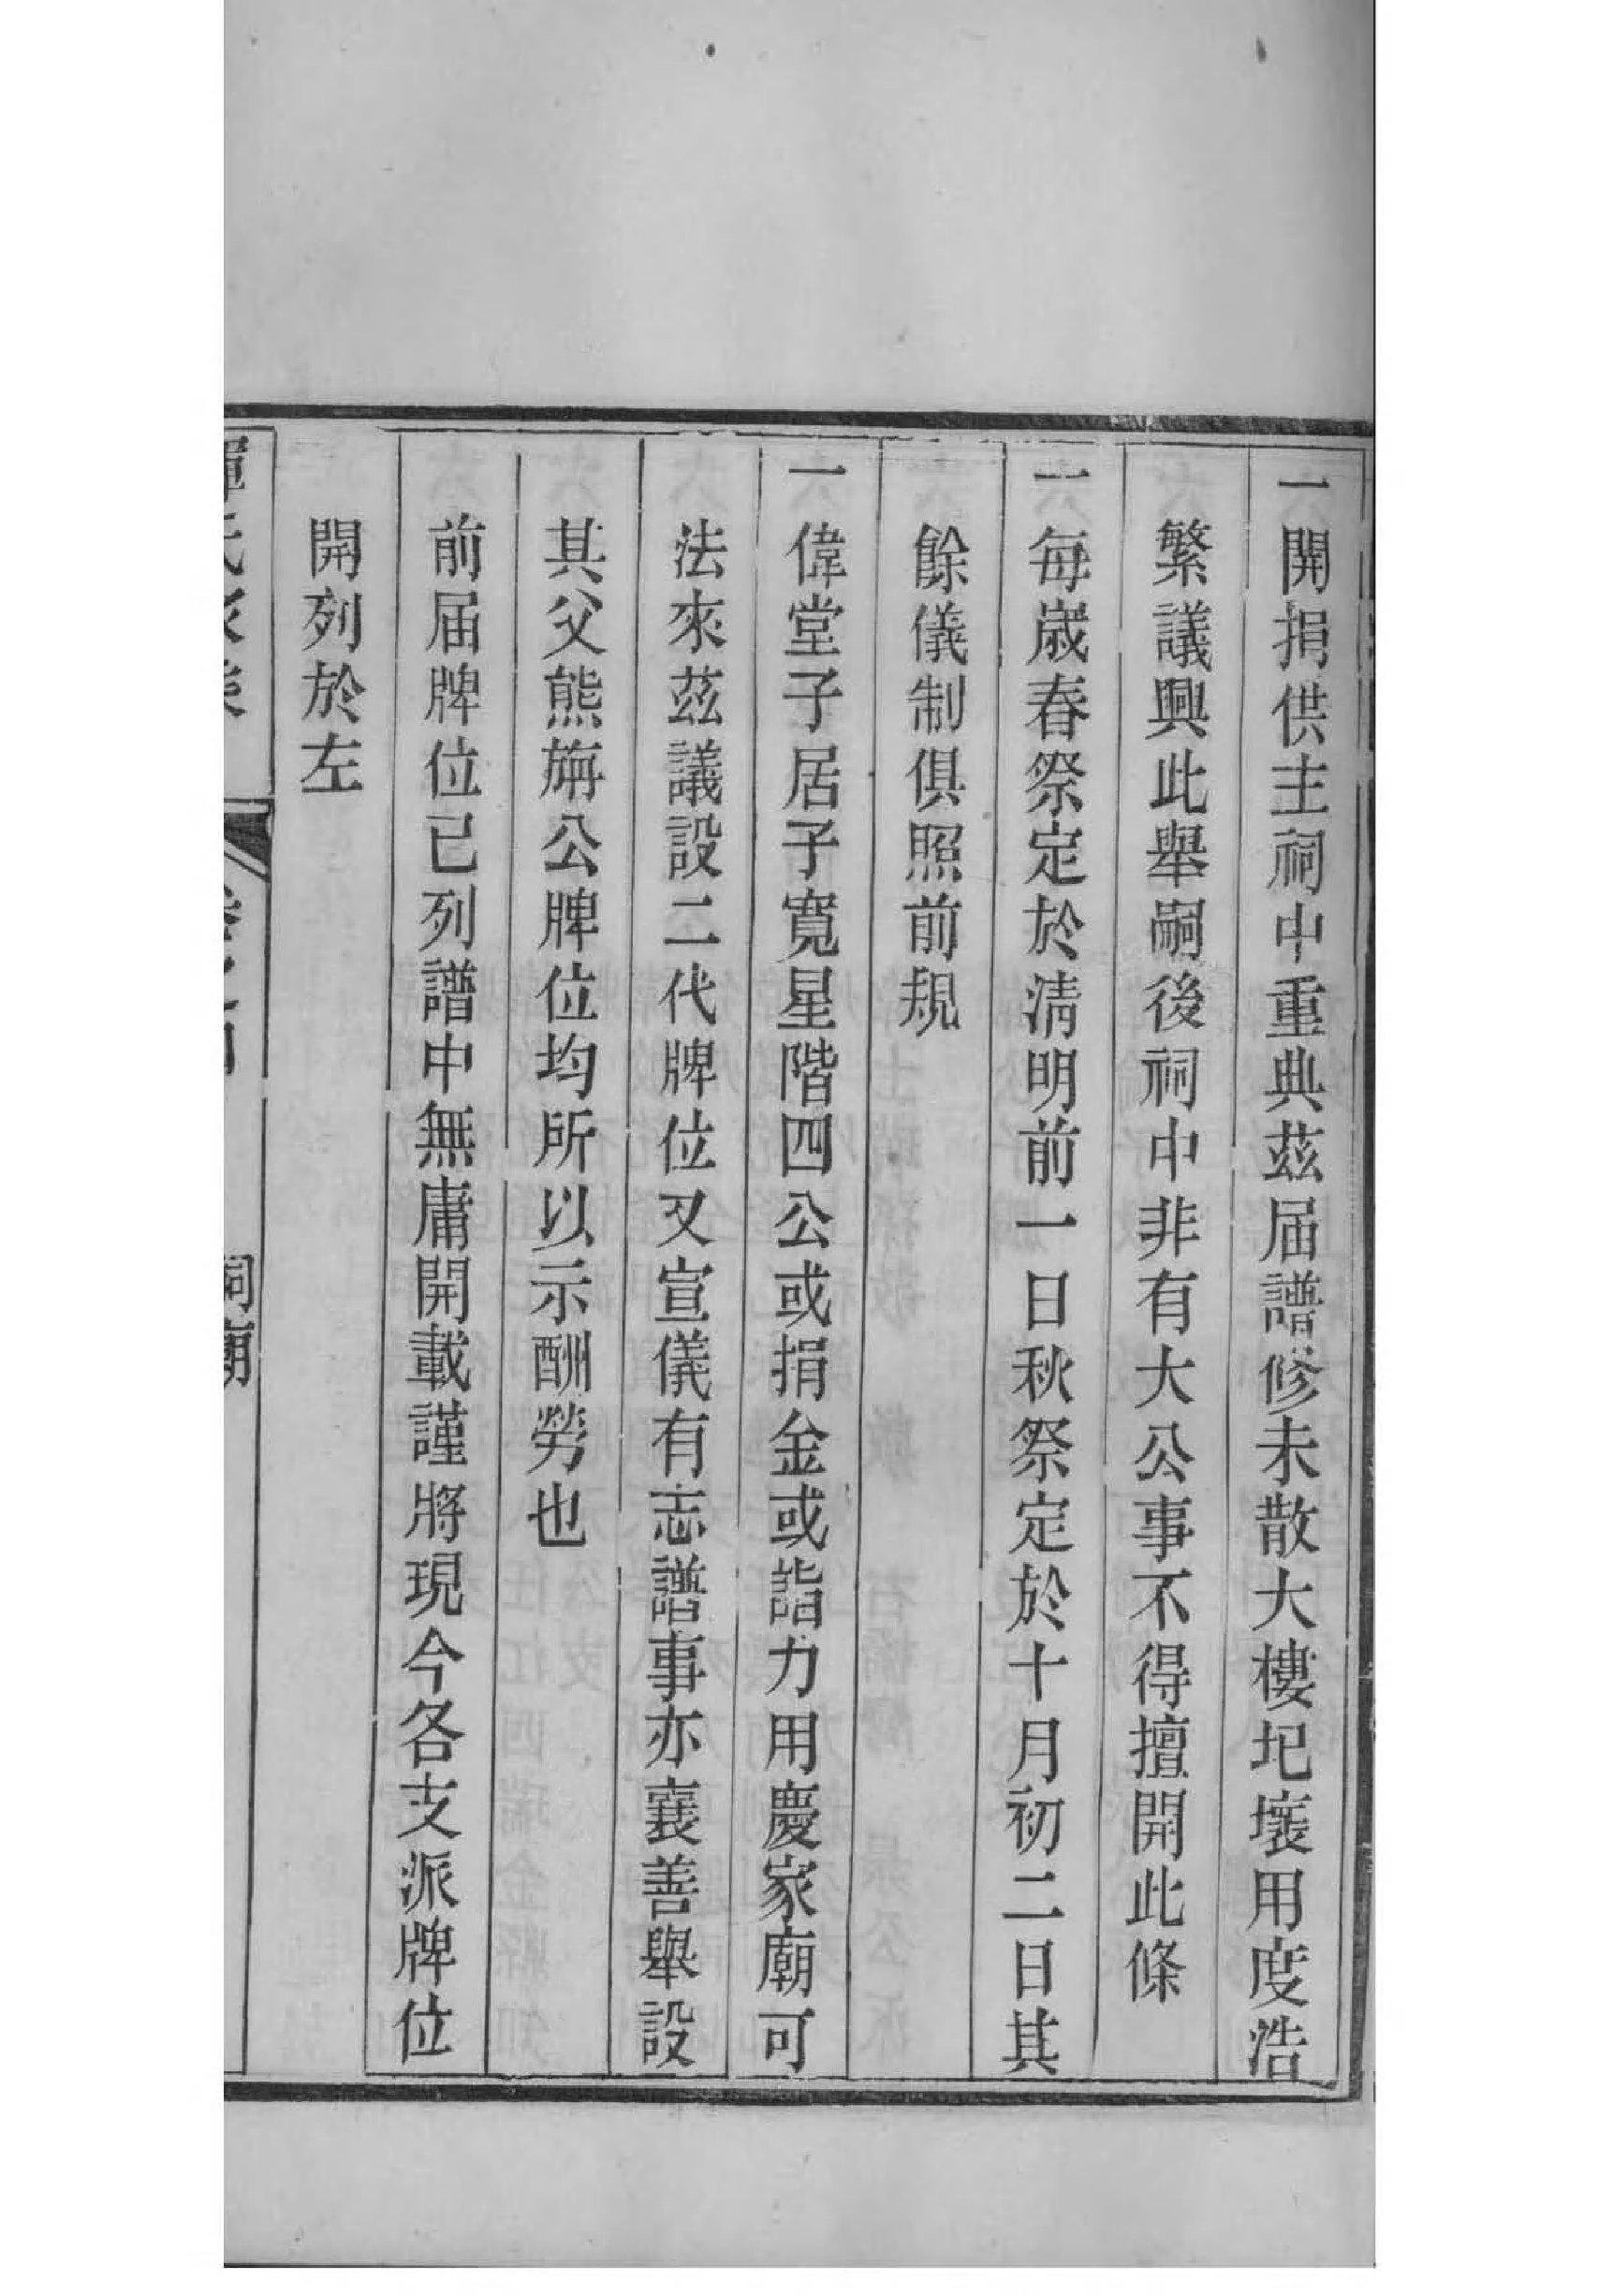 一開捐供主祠中重典茲届譜修未散大樓圯壞用度浩
繁議興此舉嗣後祠中非有大公事不得擅開此條
一每歲春祭定於淸明前一日秋祭定於十月初二日其
餘儀制俱照前規
一偉堂子居子寬星階四公或捐金或詣力用慶家廟可
法來茲議設二代牌位又宣儀有志譜事亦襄善舉設
其父熊旃公牌位均所以示酬勞也
前届牌位已列譜中無庸開載謹將現今各支派牌位
開列於左
祠廟